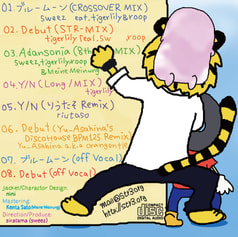 01.ブルームーン(CROSSOVER MIX)
sweez feat. tigerlily&roop
02.Debut(STR-MIX)
tigerlily feat.sw roop
03.Adansonia(8th MIX)
sweez,tigerlily&roop
&Meine Meinung
04.Y/N(Long MIX)
tigerlily
05.Y/N(りうたそ Remix)
riutaso
06.Debut(Yu_Asahina's
DiscoHouse BPM125 Remix)
Yu_Asahina a.k.a orangentle
07.ブルームーン(off Vocal)
08.Debut(off Vocal)
Jacket/Charactor Design:
Mastering:
Kenta Sato(Meine Meinung)
Direction/Produce:
siratama(sweez)
COMPACT
disc
DIGITAL AUDIO